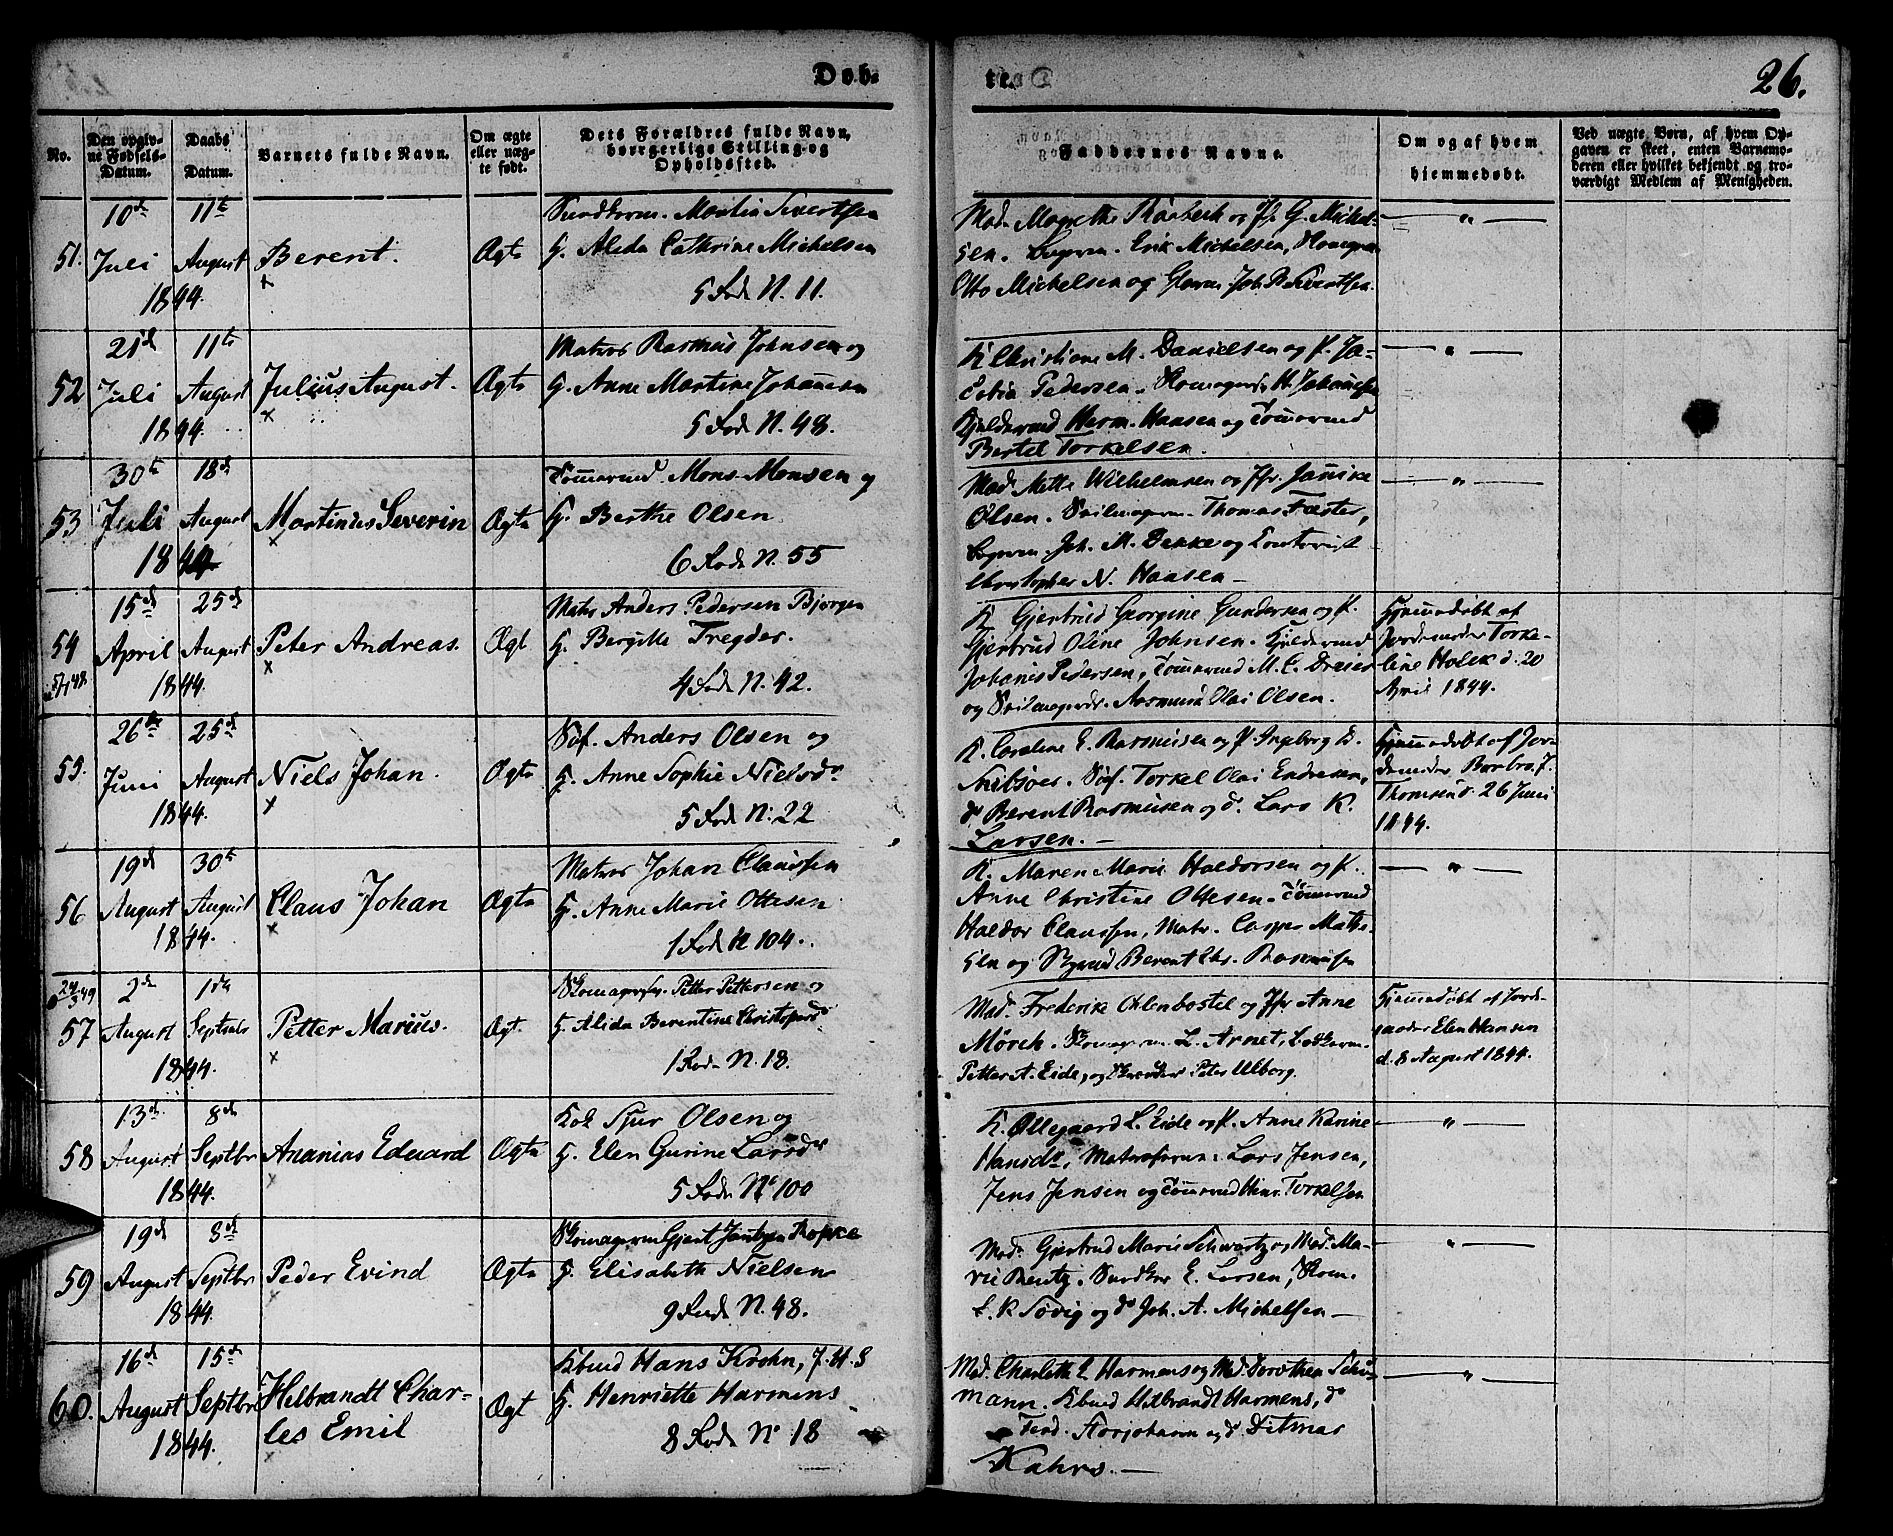 Døb-
te.
26.
No.
Den opgivne Fødsels-Datum.
Daabs Datum.
Barnets fulde Navn.
Om ægte eller uægte født.
Dets Forældres fulde Navn, borgerlige Stilling og Opholdssted.
Faddernes Navne.
Om og af hvem hjemmedøbt.
Ved uægte Børn, af hvem Opgaven er skeet, enten Barnemoderen eller hvilket bekjendt og troværdigt Medlem af Menigheden.
51. 10de Juli 1844. 11te August
Berent.
Ægte
Martin Sivertsen
H. Alida Cathrine Michelsen
5 Rode N. 11.
Mad. Magrethe Raabeck og Jfr G. Michel-
sen. Erik Michelsen,
Otto Michelsen og Joh. R. Sivertsen.
52 21de Juli 1844. 11te August
Julius August.
Ægte
Matros Rasmus Johnsen og
H. Anne Martine Johannesen
5 Rode N. 48.
K. Christiane M. Danielsen og P. Ja-
cobia Pedersen. H. Johannessen
Herm. Hansen og Tømmermd
Bertel Torkelsen.
53 30te Juli 1844 18de August
Martinus Severin
Ægte
Tømmermd Mons Monsen og
H. Berthe Olsen
6 Rode N. 55
Mad. Mette Wilhelmsen og Jfr. Jannike
Olsen. Seilmagerm. Thomas Fæster,
Joh. M. Dekke og Contorist
Christopher N. Hansen
54 15de April 1844. 25de August
Peter Andreas.
Ægt
Matr Anders Pedersen Bjergen
H. Bergitte Tregder.
4 Rode N. 42.
K. Gjertrud Georgine Gundersen og P.
Gjertrud Oline Johnsen.
Johanis Pedersen, Tømmermd M. C. Dreier
og Rasmus Olai Olsen.
Hjemmedøbt af
Jordemoder Torke-
line Holck d. 20
April 1844.
55. 26de Juni 1844. 25de August
Niels Johan.
Ægte
Søf. Anders Olsen og
H. Anne Sophie Nielsdr
5 Rode N. 22
K. Caroline E. Rasmusen og P. Ingeborg E.
Søf. Torkel Olai Endresen,
do Berent Rasmusen og do. Lars K.
Larsen.
Hjemmedøbt af Jor-
demoder Barbro J.
Thomsen d. 26 Juni
1844.
56 19de August 1844. 30te August
Claus Johan
Ægte
Matros Johan Claussen
H. Anne Marie Ottesen
1 Rode N 104.
K. Maren Marie Haldorsen og P.
Anne Christine Ottesen. Tømmermd
Haldor Claussen, Matr. Casper Mathi-
sen og Berent Chr. Rasmusen
57 2de August 1844. 1ste Septbr
Petter Marius.
Ægt.
Petter Pettersen og
H. Alida Berentine Christophersdr
1 Rode N. 18.
Mad. Frederike Ohlenbostel og Jfr. Anne
Mörch. L. Arnet,
Petter A. Eide, og Peter Ulborg.
Hjemmedøbt af Jorde-
moder Elen Hansen
d. 8 August 1844.
58 13de August 1844. 8de Septbr
Ananias Eduard
Ægte
Sjur Olsen og
H. Elen Gurine Larsdr
5 Rode No 100
K. Øllegaard L. Eide og P. Anne Karine
Hansdr. Lars Jensen,
Jens Jensen og Tømmermd Hinr. Torkelsen
59 19de August 1844. 8de Septbr
Peder Evind
Ægte
Skomagerm Gjert Jantzen Ropke
H. Elisabeth Nielsen
9 Rode N. 48.
Mad. Gjertrud Marie Schwartz og Mad. Ma-
rie Rentz. E. Larsen, Skom.
L. K Søvig og do Joh. A. Michelsen
60. 16de August 1844. 15de Septbr
Helbrandt Char-
les Emil
Ægt
Kbmd Hans Krohn,
H. Henriette Harmens
8 Rode No 18
Mad. Charlotte E. Harmens og Mad. Dorothea Schu-
mann. Kbmd Hilbrandt Harmens, do
Ferd. Storjohann og do. Ditmar
Kahrs.